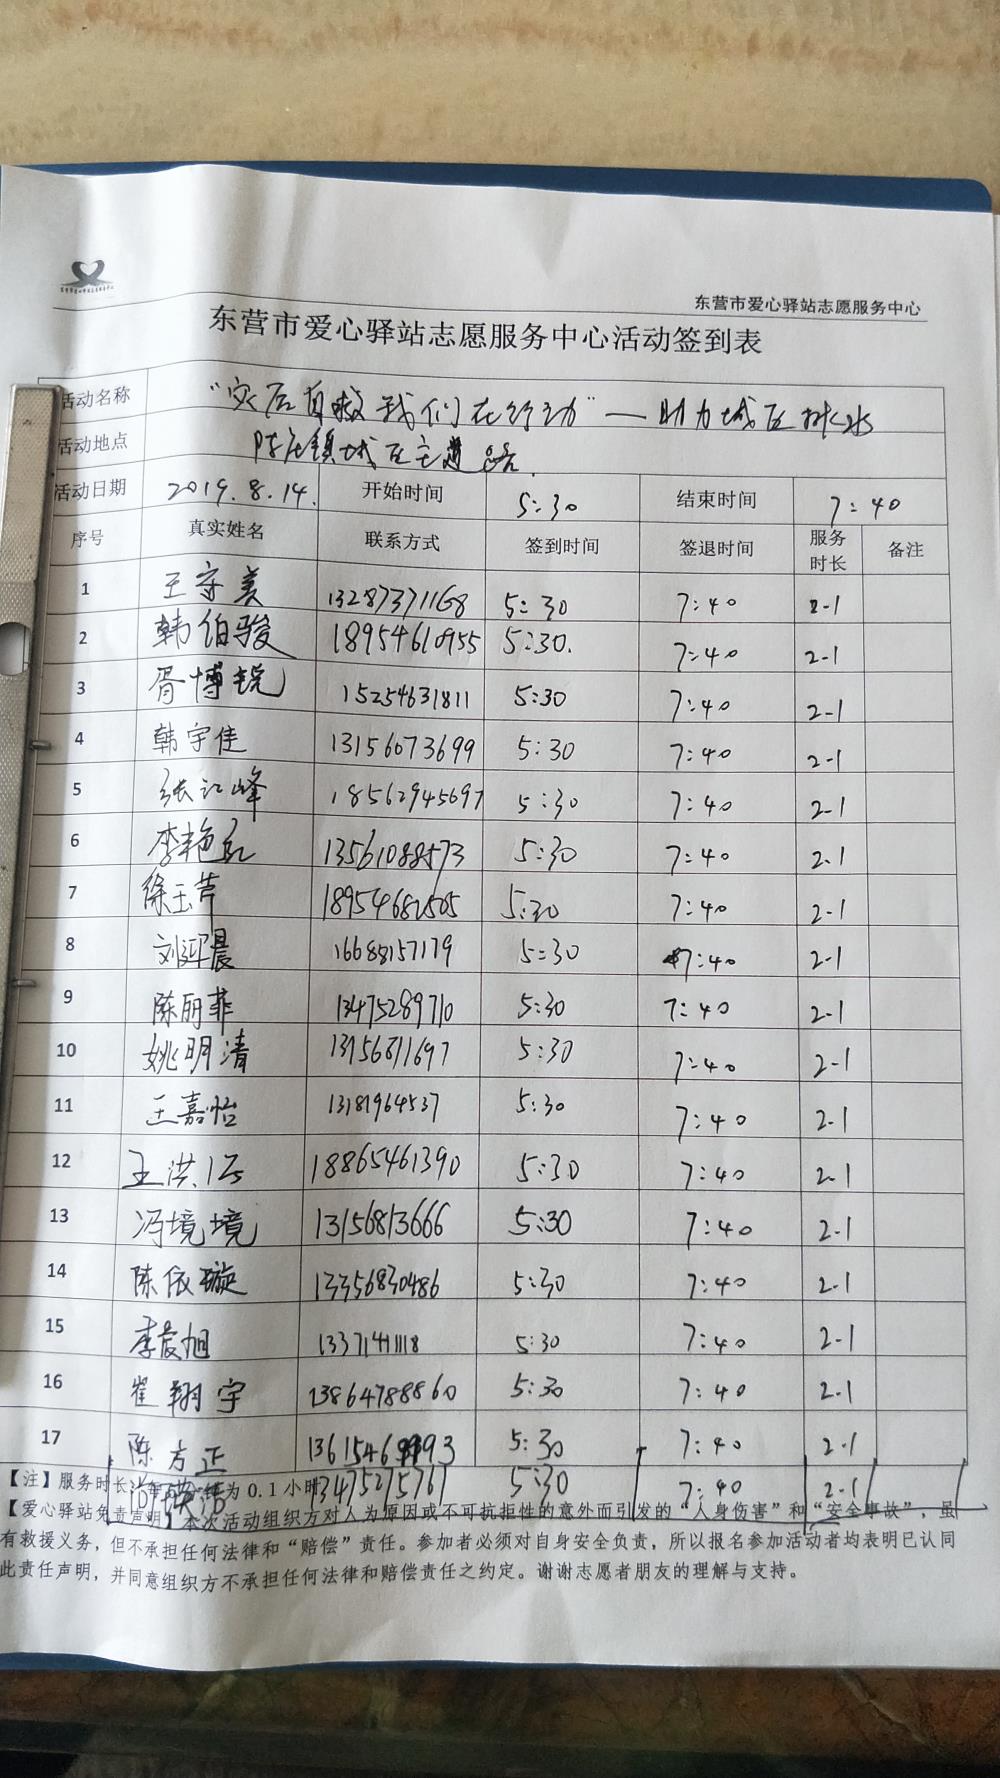 东营市爱心驿站志愿服务中心
东营市爱心驿站志愿服务中心活动签到表
活动名称 “灾后自救我们在行动”—助力城区排水
活动地点 陈庄镇城区主道路.
活动日期 2019.8.14. 开始时间 5:30 结束时间 7:40
序号 真实姓名 联系方式 签到时间 签退时间 服务时长 备注
1 王守美 13287371168 5:30 7:40 2.1
2 韩伯骏 18954610955 5:30. 7:40 2.1
3 胥博锐 15254631811 5:30 7:40 2.1
4 韩宇佳 13156073699 5:30 7:40 2.1
5 张江峰 18562945697 5:30 7:40 2.1
6 李艳红 13561088573 5:30 7:40 2.1
7 徐玉芹 5:30 7:40 2.1
8 晨 16688157179 5:30 7:40 2.1
9 陈丽菲 13475289710 5:30 7:40 2.1
10 姚明清 5:30 7:40 2.1
11 王嘉怡 13181964537 5:30 7:40 2.1
12 王洪 18865461390 5:30 7:40 2.1
13 冯境境 13156813666 5:30 7:40 2.1
14 陈依璇 13356830486 5:30 7:40 2.1
15 李晨旭 5:30 7:40 2.1
16 崔翔宇 13864788860 5:30 7:40 2.1
17 陈方正 5:30 7:40 2.1
13475275761 5:30 7:40 2.1
【注】服务时长 为 0.1 小时
【爱心驿站免责声明】本次活动组织方对人为原因或不可抗拒性的意外而引发的“人身伤害”和“安全事故”，虽
有救援义务，但不承担任何法律和“赔偿”责任。参加者必须对自身安全负责，所以报名参加活动者均表明已认同
此责任声明，并同意组织方不承担任何法律和赔偿责任之约定。谢谢志愿者朋友的理解与支持。